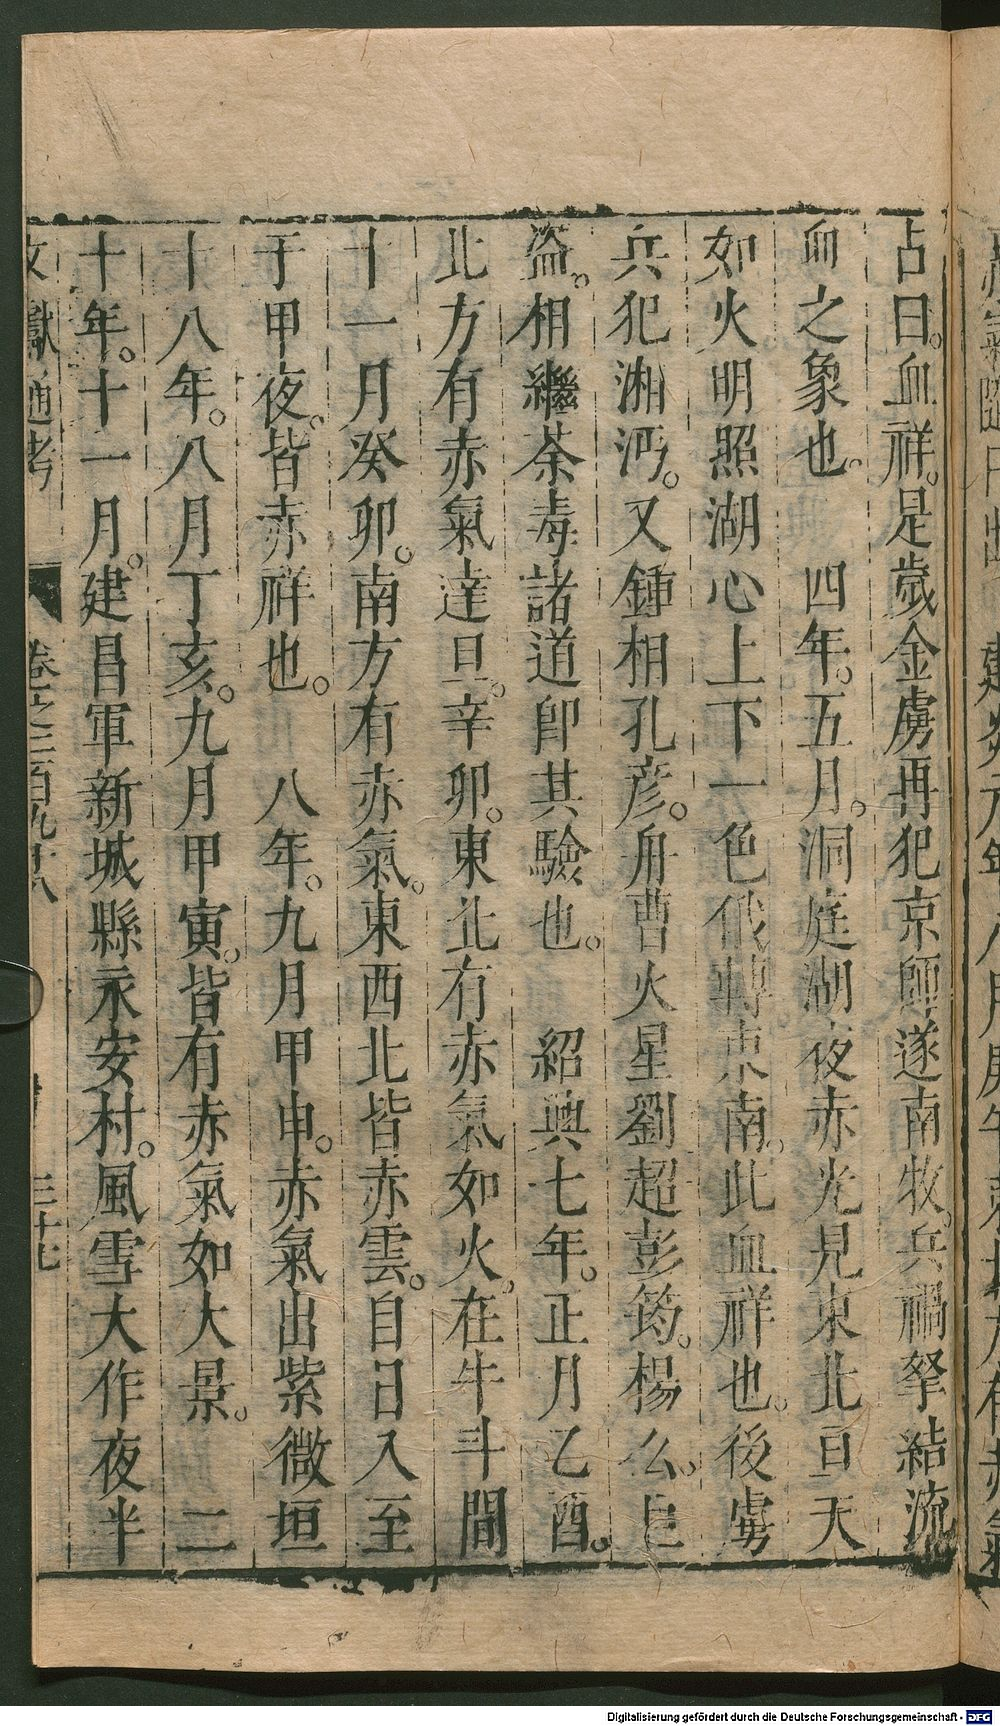 占曰。血祥。是歲金虜再犯京師遂南牧。兵禍拏結流
血之象也。　四年。五月。洞庭湖夜赤光見東北亘天
如火明照湖心上下一色俄轉東南。此血祥也。後虜
兵犯湘沔。又鍾相孔彦。舟曹火星劉超彭筠。楊么。巨
盜。相繼荼毒諸道卽其驗也。　紹興七年。正月乙酉。
北方有赤氣達旦。辛卯。東北有赤氣如火。在牛斗間
十一月癸卯。南方有赤氣。東西北皆赤雲。自日入至
于甲夜。皆赤祥也。　八年。九月甲申。赤氣出紫微垣
十八年。八月丁亥。九月甲寅。皆有赤氣如大景。　二
十年。十一月。建昌軍新城縣永安村。風雪大作夜半
文獻通考　卷之二百九十八　三十七
Digitalisierung gefördert durch die Deutsche Forschungsgemeinschaft - DFG